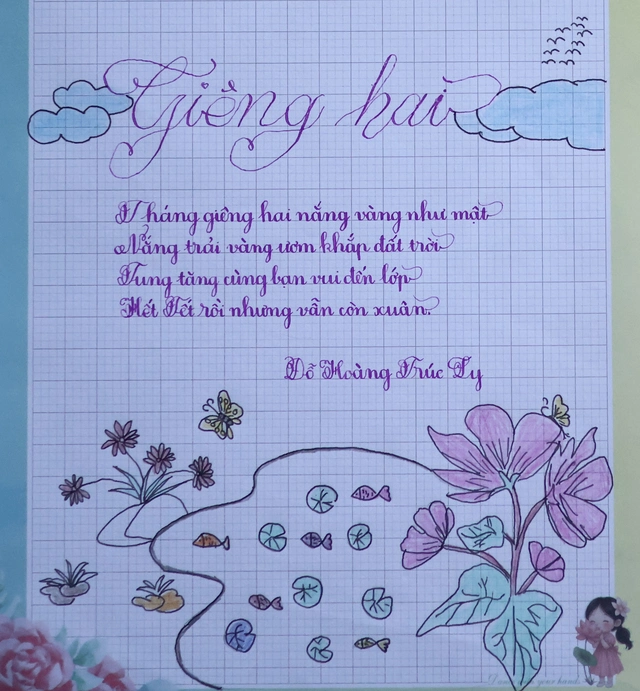 Giêng hai
Tháng giêng hai nắng vàng như mật
Nắng trải vàng ươm khắp đất trời
Tung tăng cùng bạn vui đến lớp
Hết Tết rồi nhưng vẫn còn xuân.
Đỗ Hoàng Trúc Ty